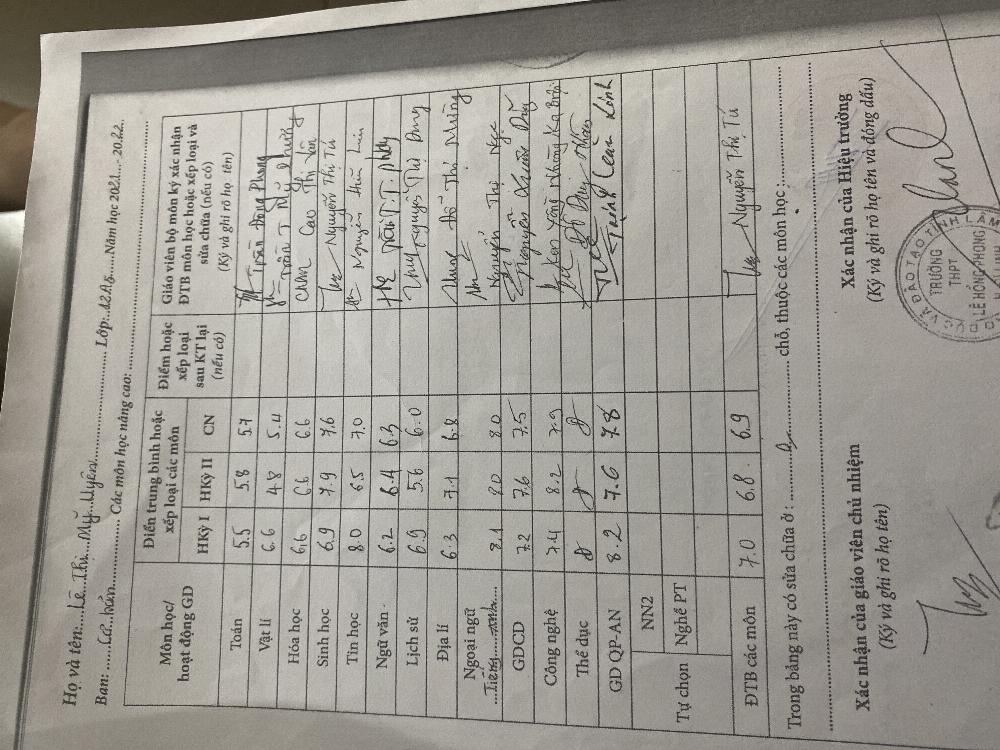 Họ và tên:....Lê Thị Mỹ Uyên............ Lớp:..12A5.....Năm học 2021...-2022..
Ban: ......Cơ bản........... Các môn học nâng cao: ................
Môn học/ hoạt động GD | Điểm trung bình hoặc xếp loại các môn | Điểm hoặc xếp loại sau KT lại (nếu có) | Giáo viên bộ môn ký xác nhận ĐTB môn học hoặc xếp loại và sửa chữa (nếu có) (Ký và ghi rõ họ tên)
HKỳ I | HKỳ II | CN
Toán 5.5 5.8 5.7 Trần Đông Phong
Vật lí 6.6 4.8 5.4 Trần T Mỹ Phương
Hóa học 6.6 6.6 6.6 Cao Thị Vân
Sinh học 6.9 7.9 7.6 Nguyễn Thị Tú
Tin học 8.0 6.5 7.0 Nguyễn Hữu
Ngữ văn 6.2 6.4 6.3
Lịch sử 6.9 5.6 6.0 Nguyễn Thị Dung
Địa lí 6.3 7.1 6.8 Hồ Thị Nhung
Ngoại ngữ
Tiếng...Anh... 8.1 8.0 8.0 Nguyễn Thị Ngọc
GDCD 7.2 7.6 7.5 Nguyễn Xuân
Công nghệ 7.4 8.2 7.9
Thể dục đ đ đ
GD QP-AN 8.2 7.6 7.8
Tự chọn NN2
Nghề PT
ĐTB các môn 7.0 6.8 6.9 Nguyễn Thị Tú
Trong bảng này có sửa chữa ở : ................ chỗ, thuộc các môn học :................
Xác nhận của giáo viên chủ nhiệm
(Ký và ghi rõ họ tên)
Xác nhận của Hiệu trưởng
(Ký và ghi rõ họ tên và đóng dấu)
DỤC VÀ ĐÀO TẠO TỈNH LÂM
TRƯỜNG
THPT
LÊ HỒNG PHONG